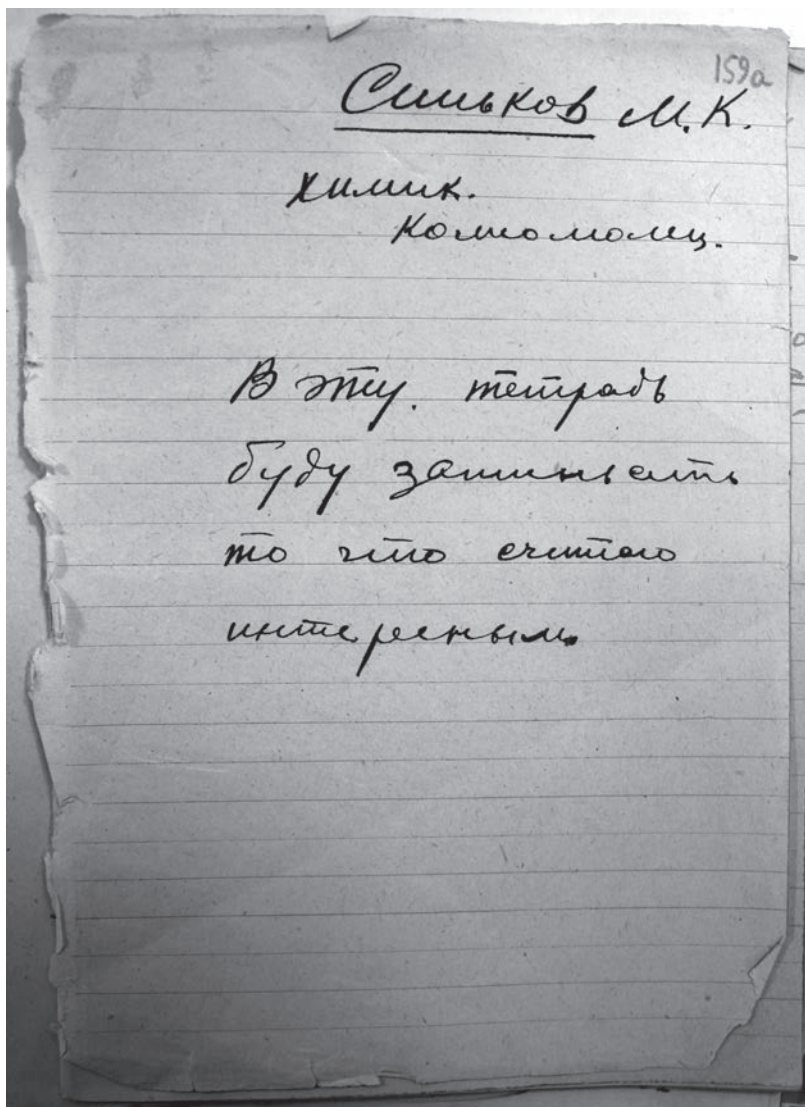 159а
Синьков М.К.
химик.
Комсомолец.
В эту. тетрадь
буду записывать
то что считаю
интересным